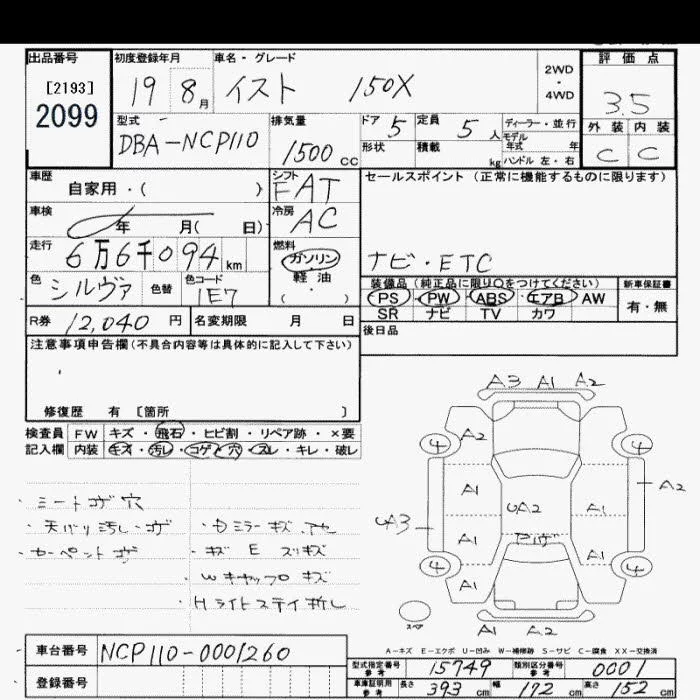 出品番号 初度登録年月 車名・グレード 評価点
[2193] 2099 19 8月 イスト 150X 2WD・4WD 3.5
外装 内装
C C
型式 DBA-NCP110 排気量 1500cc ドア 5 定員 5人 ディーラー・並行
形状 積載 kg モデル年式 年
ハンドル 左・右
車歴 自家用・( ) シフト FAT セールスポイント(正常に機能するものに限ります)
車検 年 月( 日) 冷房 AC
走行 6万6千094km 燃料 ガソリン・軽油 ( ) ナビ・ETC
色 シルヴァ 色替 色コード 1E7 装備品(純正品に限り○をつけてください) 新車保証書
PS PW ABS エアB AW 有・無
SR ナビ TV カワ
R券 12,040円 名変期限 月 日 後日品
注意事項申告欄(不具合内容等は具体的に記入して下さい)
修復歴 有 [箇所 ]
検査員 FW キズ・飛石・ヒビ割・リペア跡・×要
記入欄 内装 キズ・汚レ・コゲ・穴・スレ・キレ・破レ
A3 A1 A2
4 A2 4
A1 A1 A2
UA3 UA2
A1 A1
4 A1 4
スペア A1 A2
・シートコゲ 穴
・天バリ汚レ・コゲ
・カーペット コゲ
・キズ E スリキズ
・Wキャップ キズ
・Hライトステイ折レ
A-キズ E-エクボ U-凹み W-補修跡 S-サビ C-腐食 XX-交換済
車台番号 NCP110-0001260
登録番号
型式指定番号 参考 15749 類別区分番号 参考 0001
車庫証明用 参考 長さ 393cm 幅 172cm 高さ 152cm